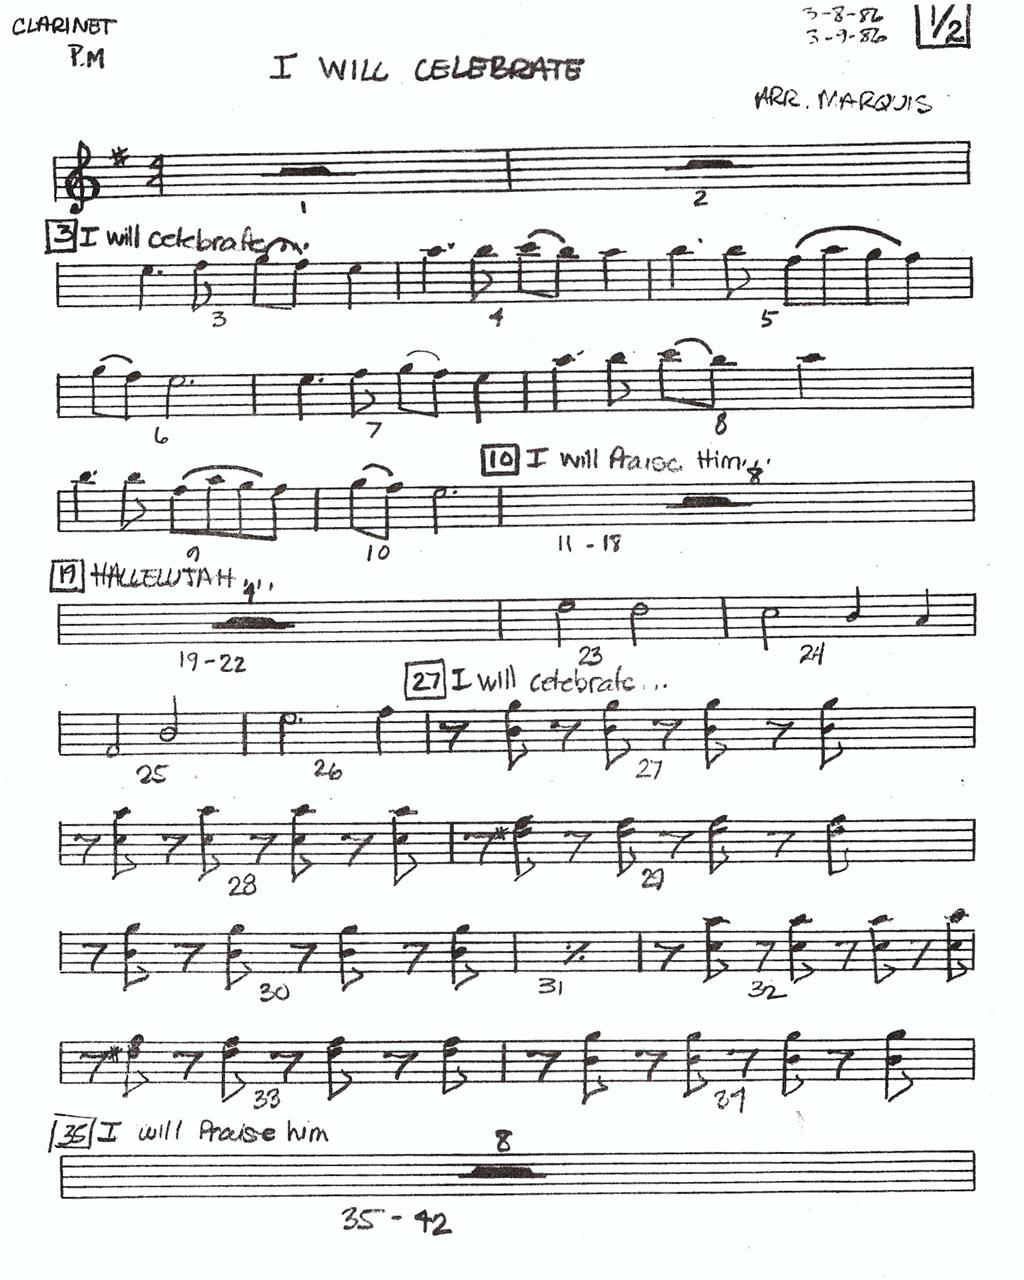 CLARINET
P.M
3-8-86
3-9-86
1/2
I WILL CELEBRATE
ARR. MARQUIS
4
4
1
2
3 I will celebrate...
3 4 5
6 7 8
10 I will Praise Him...
8
9 10 11-18
19 HALLELUJAH...
4
19-22 23 24
27 I will celebrate...
25 26 27
28 29
30 31 32
33 34
35 I will Praise him
8
35-42